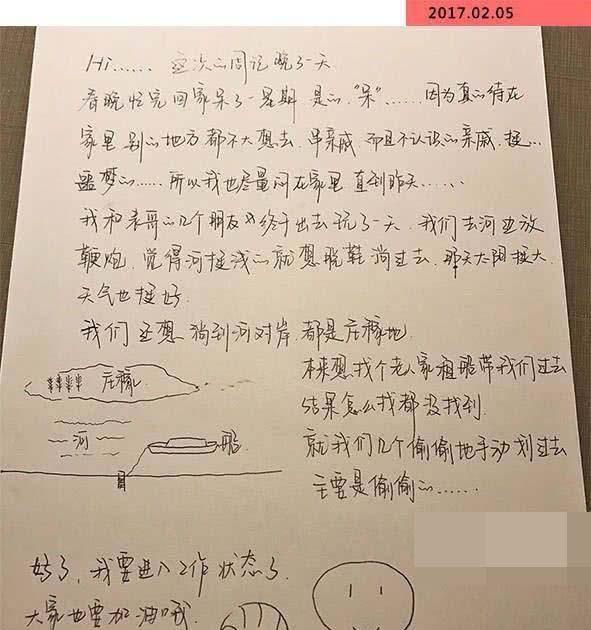 2017.02.05
Hi...... 这次的周记晚了一天
春晚忙完回家呆了一星期 是的. "呆" ...... 因为真的待在
家里 别的地方都不大想去. 串亲戚 而且不认识的亲戚. 挺...
噩梦的...... 所以我也尽量闷在家里 直到昨天......
我和表哥的几个朋友 终于出去玩了一天. 我们去河边放
鞭炮. 觉得河挺浅的就想脱鞋淌过去. 那天太阳挺大.
天气也挺好.
我们还想淌到河对岸 都是庄稼地.
庄稼
河
船
本来想找个老人家租船带我们过去
结果怎么找都没找到.
就我们几个偷偷地手动划过去
主要是偷偷的......
好了, 我要进入工作状态了.
大家也要加油哦.